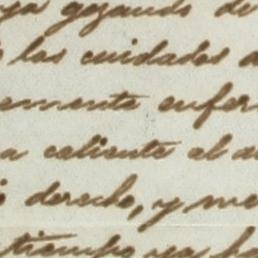 ya gozando de
los cuidados
emente enfer
a caliente al
derecho, y me
tiempo ya ha